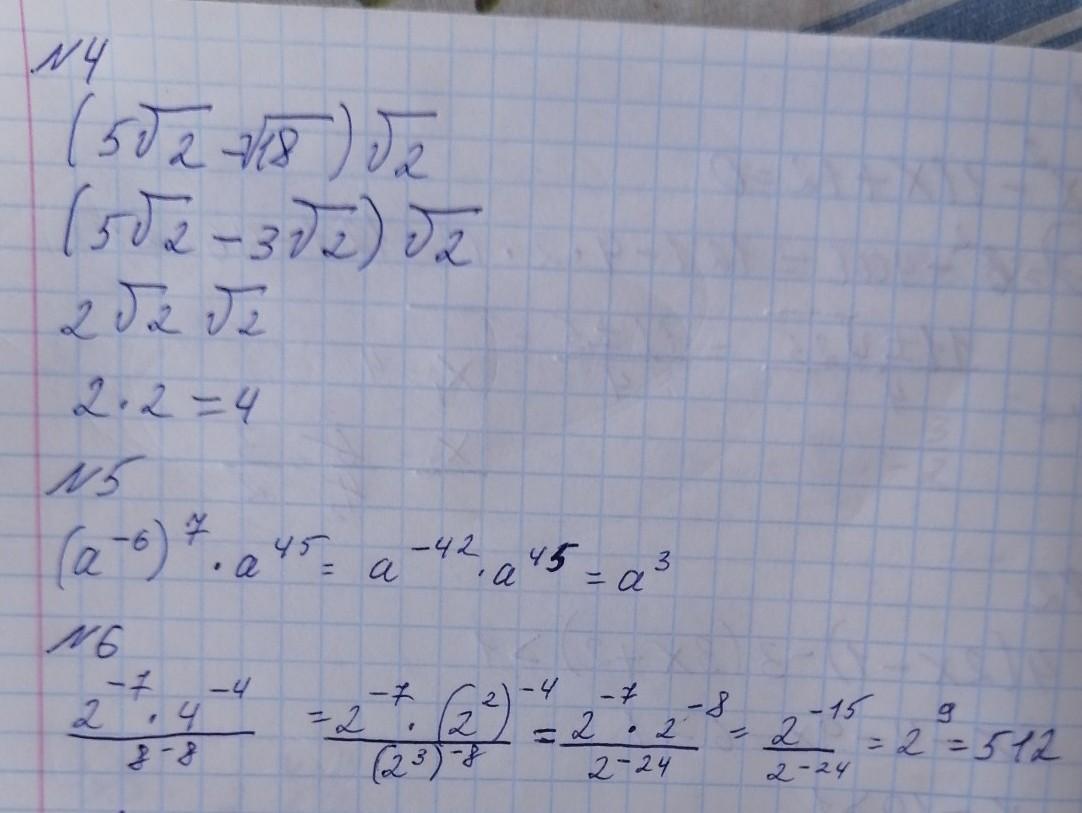 №4
(5√2 - √18)√2
(5√2 - 3√2)√2
2√2 √2
2·2=4
№5
(a⁻⁶)⁷ · a⁴⁵ = a⁻⁴² · a⁴⁵ = a³
№6
2⁻⁷ · 4⁻⁴ / 8⁻⁸ = 2⁻⁷ · (2²)⁻⁴ / (2³)⁻⁸ = 2⁻⁷ · 2⁻⁸ / 2⁻²⁴ = 2⁻¹⁵ / 2⁻²⁴ = 2⁹ = 512